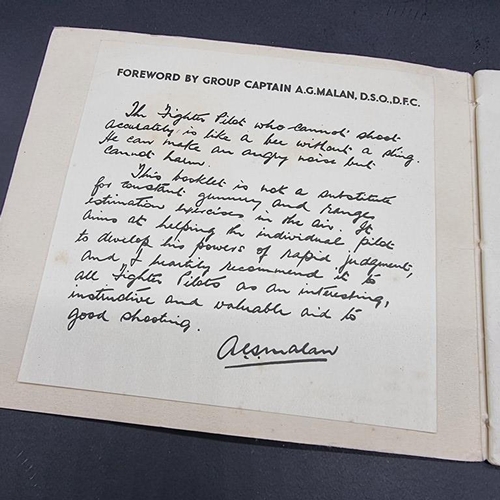 FOREWORD BY GROUP CAPTAIN A.G.MALAN, D.S.O.,D.F.C.
The Fighter Pilot who cannot shoot
accurately is like a bee without a sting.
He can make an angry noise but
cannot harm.
This booklet is not a substitute
for constant gunnery and range
estimation exercises in the air. It
aims at helping the individual pilot
to develop his powers of rapid judgment,
and I heartily recommend it to
all Fighter Pilots as an interesting,
instructive and valuable aid to
good shooting.
A.G.Malan